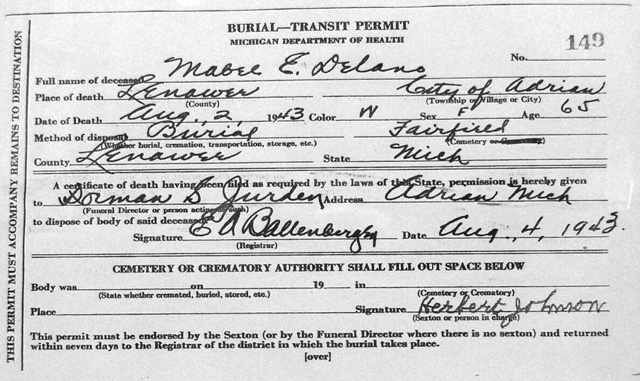 BURIAL—TRANSIT PERMIT
MICHIGAN DEPARTMENT OF HEALTH
No. 149
Full name of deceased Mabel E. Delano
Place of death Lenawee City of Adrian
(County) (Township or Village or City)
Date of Death Aug. 2, 1943 Color W Sex F Age 65
Method of disposal Burial Fairfield
(Whether burial, cremation, transportation, storage, etc.) (Cemetery or Crematory)
County Lenawee State Mich
A certificate of death having been filed as required by the laws of this State, permission is hereby given
to Dorman S Address Adrian Mich
(Funeral Director or person acting as such)
to dispose of body of said deceased.
Signature E A Date Aug., 4, 1943
(Registrar)
CEMETERY OR CREMATORY AUTHORITY SHALL FILL OUT SPACE BELOW
Body was on 19 in
(State whether cremated, buried, stored, etc.) (Cemetery or Crematory)
Place Signature Herbert Johnson
(Sexton or person in charge)
This permit must be endorsed by the Sexton (or by the Funeral Director where there is no sexton) and returned
within seven days to the Registrar of the district in which the burial takes place.
[over]
THIS PERMIT MUST ACCOMPANY REMAINS TO DESTINATION